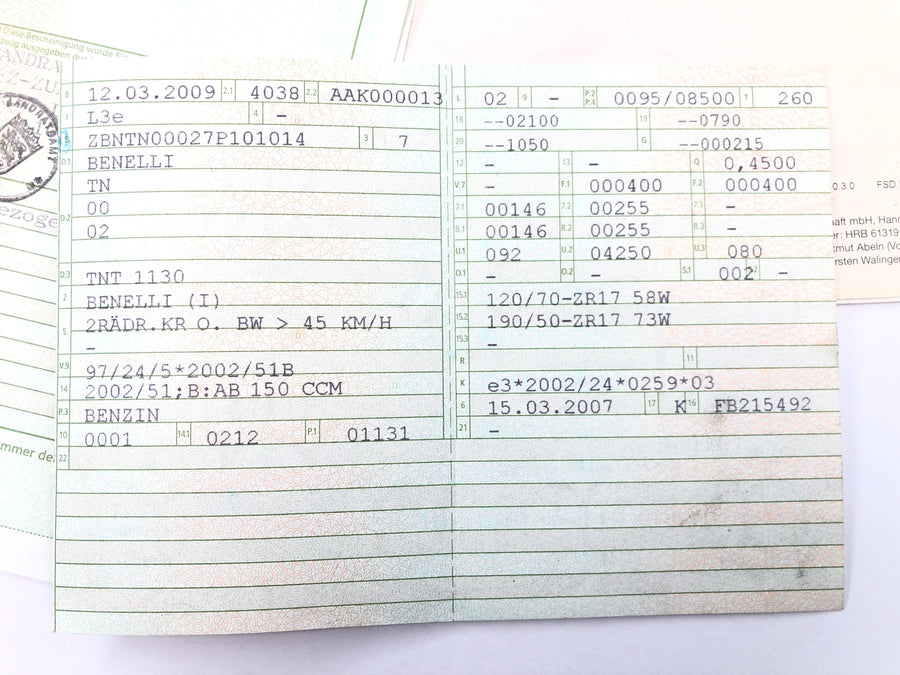 Diese Bescheinigung wurde für
zeug ausgegeben du
ANDRA
Z-ZU
LANDRATSAMT
ezoge
mmer de
B 12.03.2009 2.1 4038 2.2 AAK000013
J L3e 4 –
E ZBNTN00027P101014 3 7
D.1 BENELLI
TN
D.2 00
02
D.3 TNT 1130
2 BENELLI (I)
5 2RÄDR.KR O. BW > 45 KM/H
–
V.9 97/24/5*2002/51B
14 2002/51;B:AB 150 CCM
P.3 BENZIN
10 0001 14.1 0212 P.1 01131
22
L 02 9 – P.2 P.4 0095/08500 T 260
18 --02100 19 --0790
20 --1050 G --000215
12 – 13 – Q 0,4500
V.7 – F.1 000400 F.2 000400
7.1 00146 7.2 00255 7.3 –
8.1 00146 8.2 00255 8.3 –
U.1 092 U.2 04250 U.3 080
O.1 – O.2 – S.1 002 S.2 –
15.1 120/70-ZR17 58W
15.2 190/50-ZR17 73W
15.3 –
R 11
K e3*2002/24*0259*03
6 15.03.2007 17 K 16 FB215492
21 –
0 3.0 FSD
aft mbH, Hann
er: HRB 61319
tmut Abeln (Vo
rsten Walinger